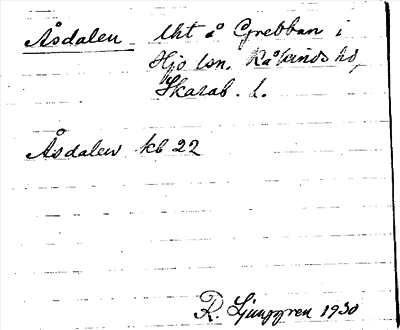 Åsdalen Uht å Grebban i
Hjo lsn. Kåkinds hd,
Skarab. l.
Åsdalen kb 22
R. Ljunggren 1930